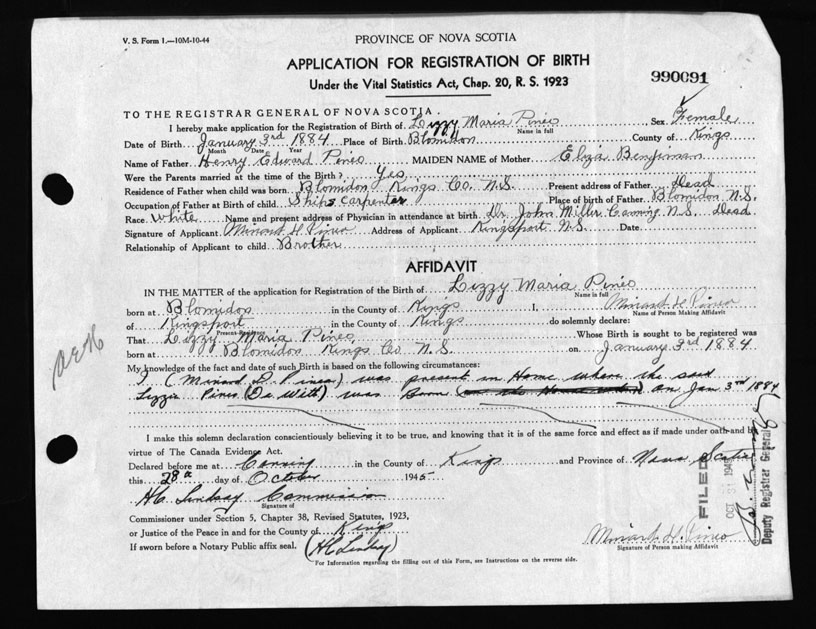 V. S. Form 1.—10M-10-44
PROVINCE OF NOVA SCOTIA
APPLICATION FOR REGISTRATION OF BIRTH
Under the Vital Statistics Act, Chap. 20, R. S. 1923
990091
TO THE REGISTRAR GENERAL OF NOVA SCOTIA.
I hereby make application for the Registration of Birth of Lizzy Maria Pineo Sex Female
Name in full
Date of Birth January 3rd 1884 Place of Birth Blomidon County of Kings
Month Date Year
Name of Father Henry Edward Pineo MAIDEN NAME of Mother Eliza Benjiman
Were the Parents married at the time of the Birth? Yes
Residence of Father when child was born Blomidon Kings Co. N.S. Present address of Father Dead
Occupation of Father at Birth of child Ships carpenter Place of birth of Father Blomidon N.S.
Race White Name and present address of Physician in attendance at birth Dr. John Miller Canning N.S. Dead
Signature of Applicant Minard H Pineo Address of Applicant Kingsport N.S. Date
Relationship of Applicant to child Brother
AFFIDAVIT
IN THE MATTER of the application for Registration of the Birth of Lizzy Maria Pineo
Name in full
born at Blomidon in the County of Kings I, Minard H Pineo
Name of Person Making Affidavit
of Kingsport in the County of Kings do solemnly declare:
Present Residence
That Lizzy Maria Pineo, Whose Birth is sought to be registered was
born at Blomidon Kings Co N.S. on January 3rd 1884
My knowledge of the fact and date of such Birth is based on the following circumstances:
I (Minard H Pineo) was present in Home where the said
Lizzie Pineo (De Witt) was Born on Jan 3rd 1884
I make this solemn declaration conscientiously believing it to be true, and knowing that it is of the same force and effect as if made under oath and by
virtue of The Canada Evidence Act.
Declared before me at Canning in the County of Kings and Province of Nova Scotia
this 28th day of October 1945
HC Lindsay Commission
Signature of
Commissioner under Section 5, Chapter 38, Revised Statutes, 1923,
or Justice of the Peace in and for the County of Kings
If sworn before a Notary Public affix seal. (HC Lindsay)
Minard H. Pineo
Signature of Person making Affidavit
For Information regarding the filling out of this Form, see Instructions on the reverse side.
FILED
OCT 31 194
Deputy Registrar General